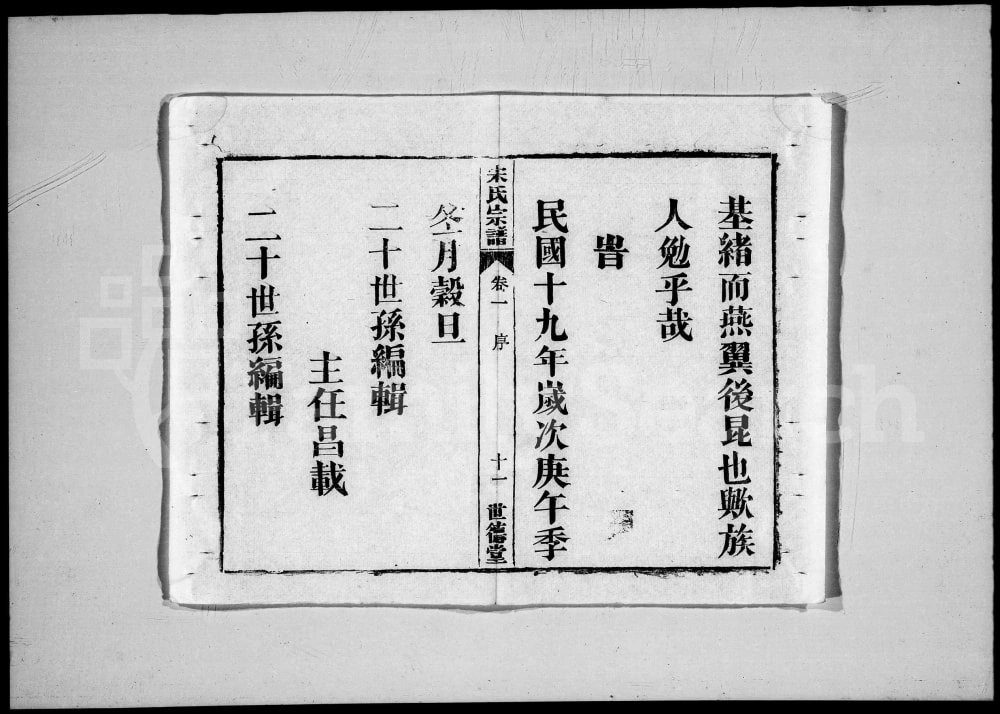 基緒而燕翼後昆也歟族
人勉乎哉
旹
民國十九年歲次庚午季
朱氏宗譜
卷一
序
十一
世德堂
冬月穀旦
二十世孫編輯
主任昌載
二十世孫編輯